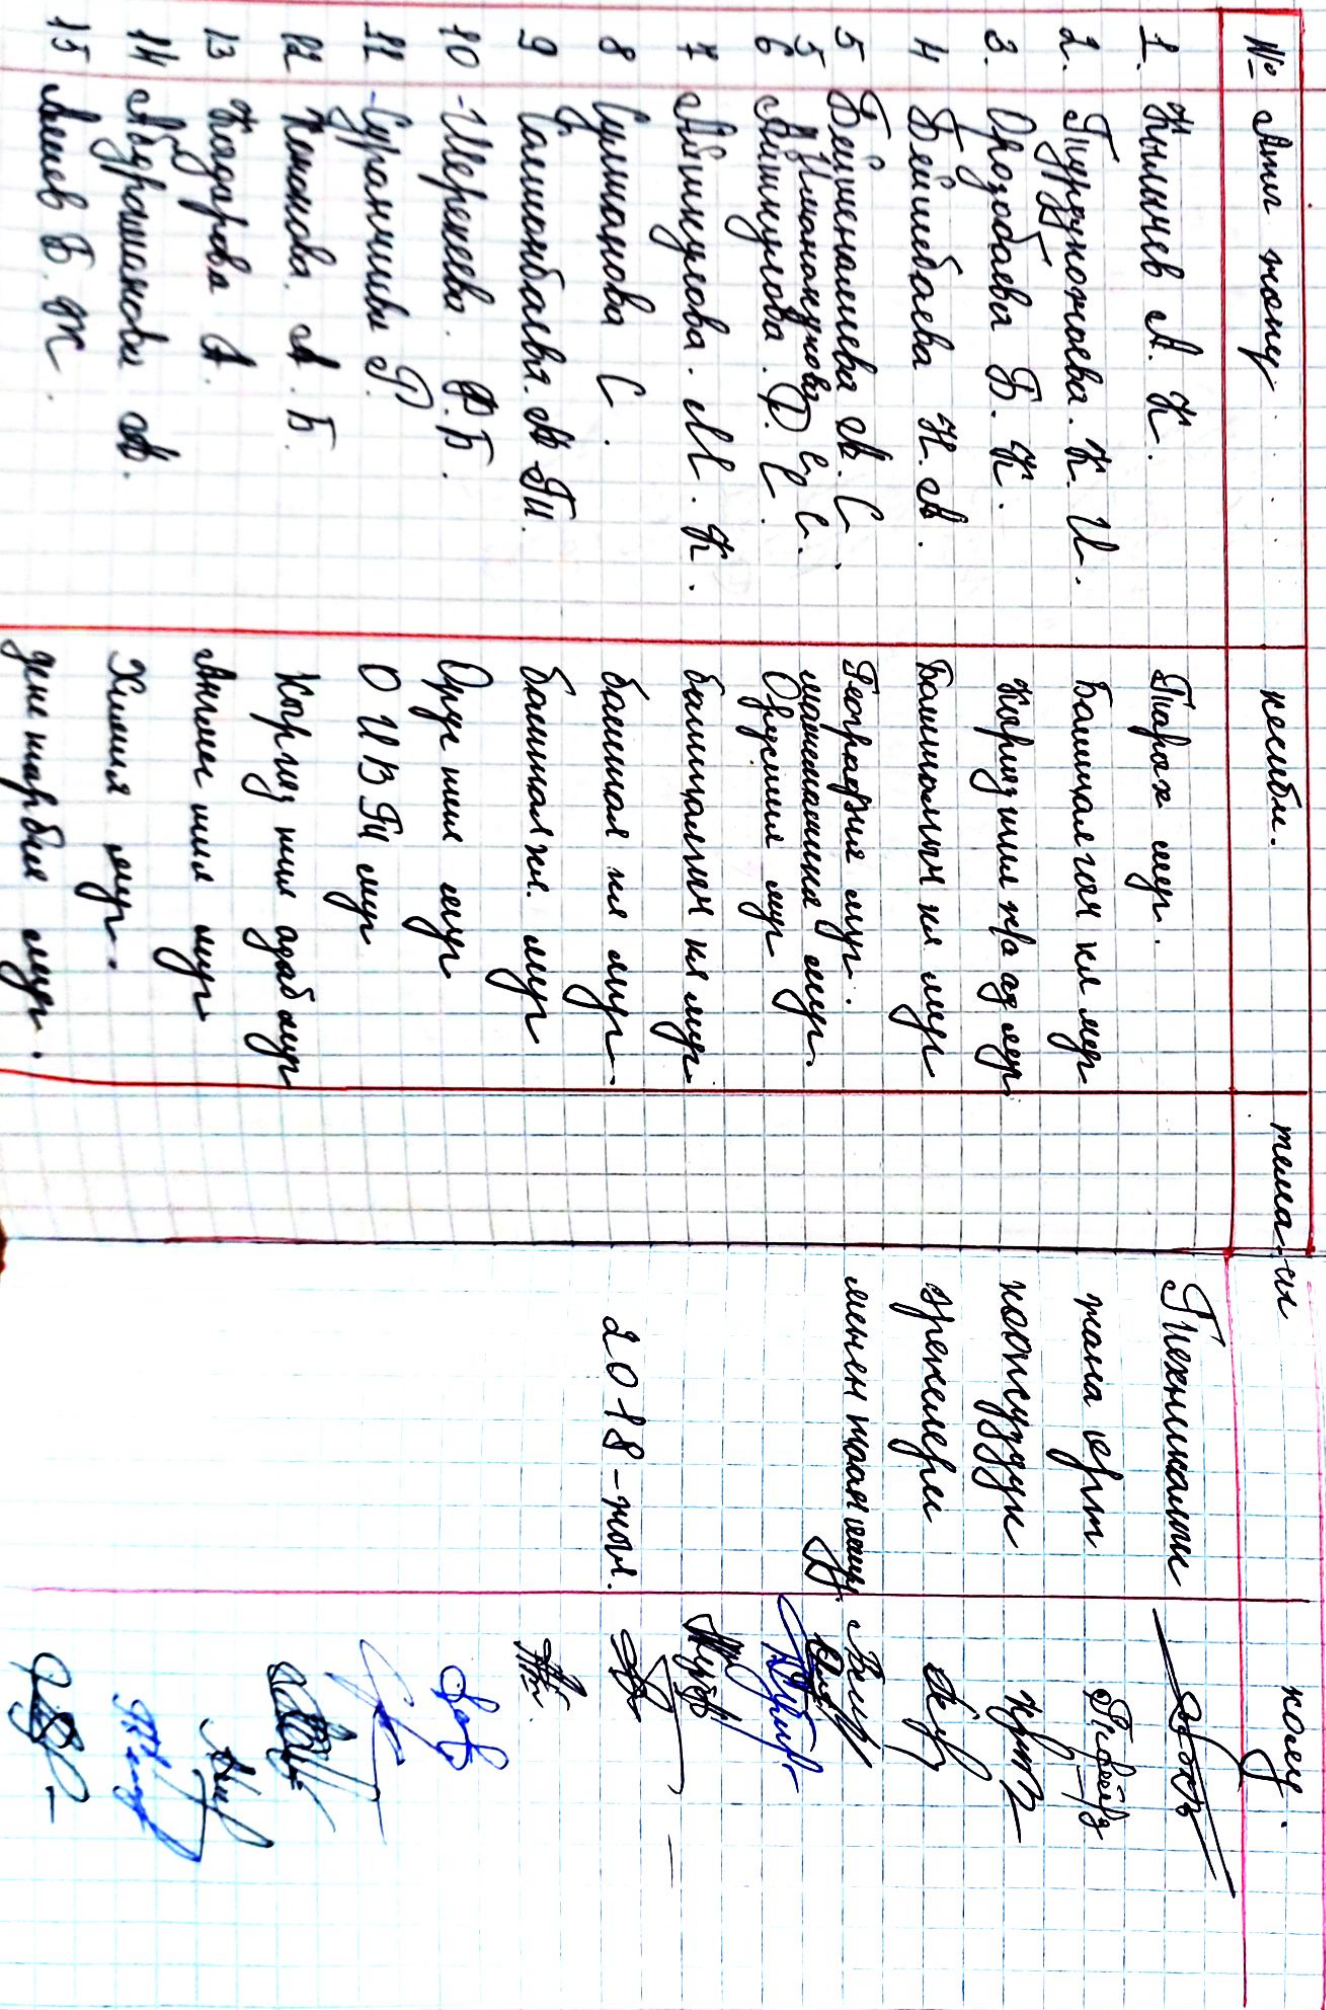 № Аты жөнү кесиби. тема-сы колу.
1. Кылычев А. К. Тарых муг. Техникалык
2. Турдукожоева. К. И. Башталгач кл муг жана өрт
3. Орозобаева Б. К. Кыргыз тил ж/а ад муг коопсуздук
4 Бейшебаева Н. А. Башталгыч кл муг эрежелери
5 Бейшеналиева А. С. География муг. менен тааныштыруу
5 С. С. математика муг.
6 Айткулова. Д. С. Орус тил муг
7 Абышкулова. М. К. башталгыч кл муг
8 Султанова С. баштал кл муг. 2018-жыл.
9 А Т. баштал кл. муг
10 Шеркеева. Ф. Б. Орус тил муг
11 Суранчиева Р. ОИВТ муг
12 Кенжеева. А. Б. Кыргыз тил адаб муг
13 Кадырова А. Англис тил муг
14 Абдрашимова А. Химия муг.
15 Алиев Б. Ж. дене тарбия муг.